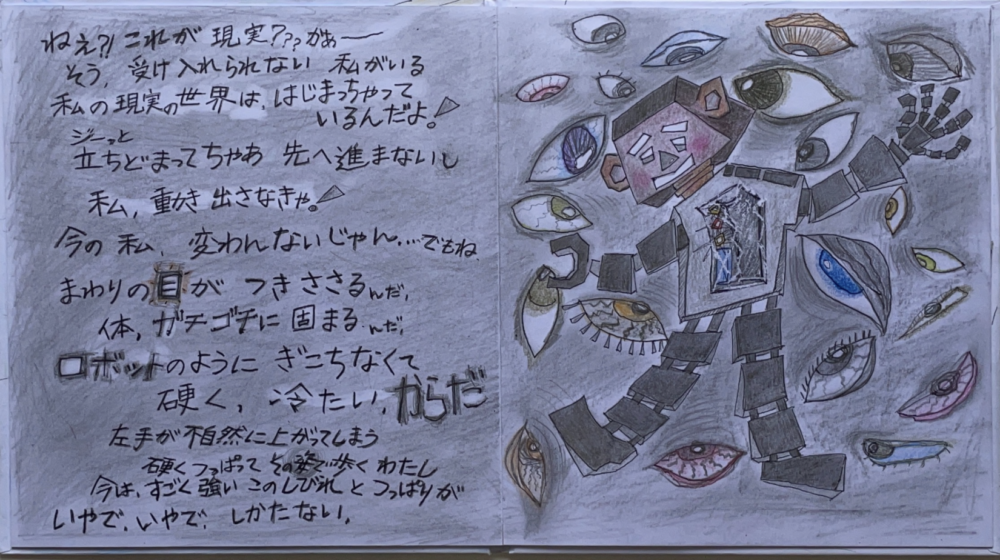 ねぇ?! これが 現実??? かぁー
そう、受け入れられない 私がいる
私の現実の世界は、はじまっちゃって
いるんだよ!
ジーっと
立ちどまってちゃあ 先へ進まないし
私、動き出さなきゃ!
今の 私、変わんないじゃん…でもね
まわりの目が つきささるんだ、
体、ガチゴチに 固まるんだ、
ロボットのように ぎこちなくて
硬く、冷たい、からだ
左手が不自然に上がってしまう
硬くつっぱって その姿で歩く わたし
今は、すごく強い このしびれ と つっぱりが
いやで、いやで、しかたない、